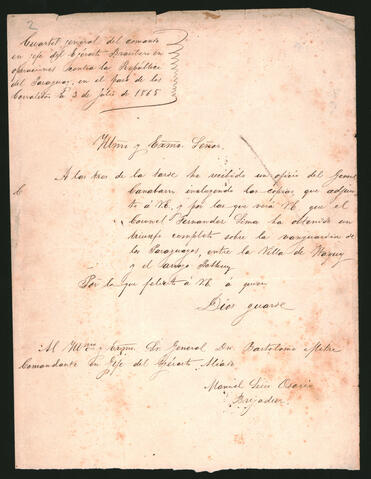 2
Cuartel general del comando
en jefe del Ejército Brasilero en
operaciones contra la República
del Paraguay, en el paso de los
3 de Julio de 1865
Illmo y Exmo Señor
A las tres de la tarde he recibido un oficio del General
Canabarro incluyendo las copias que adjun
to á VE, y por las que verá VE que el
Coronel Fernandes Lima ha obtenido un
triunfo completo sobre la vanguardia de
los Paraguayos, entre la Villa de
y el arroyo
Por lo que felicito á VE á quien
Dios guarde
Al Illmo y Exmo Sr General Dn Bartolomé Mitre
Comandante en Jefe del Ejército Aliado
Manuel Luis Osorio
Brigadier